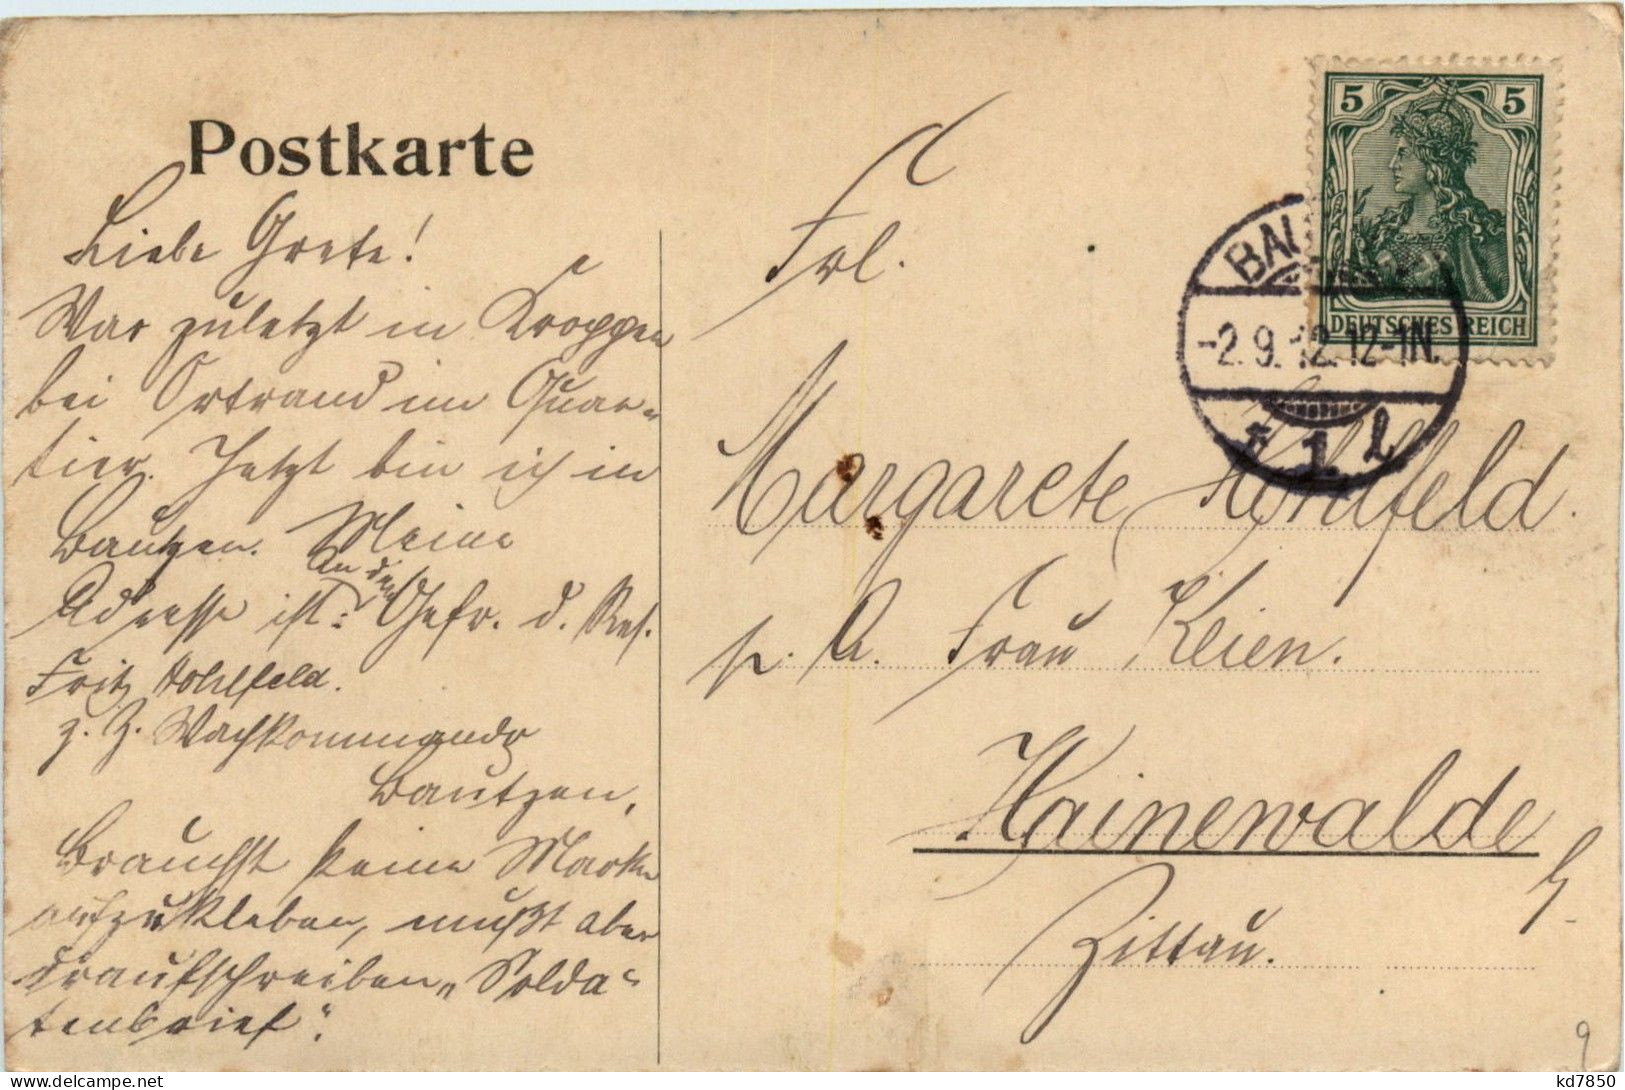 Postkarte
Liebe Grete!
War zuletzt in Kroppen
bei Ortrand im Quar-
tier. Jetzt bin ich in
Bautzen. Meine
An den
Adresse ist: Gefr. d. Res.
Fritz Hohlfeld.
z. Z. Wachkommando
Bautzen.
Brauchst keine Marke
aufzukleben, mußt aber
draufschreiben „Solda-
tenbrief".
5 5
DEUTSCHES REICH
BAU
-2.9.12.12-1N.
1
Frl.
Margarete Hohlfeld.
p. A. Frau Klien.
Hainewalde
b.
Zittau.
9
kd7850